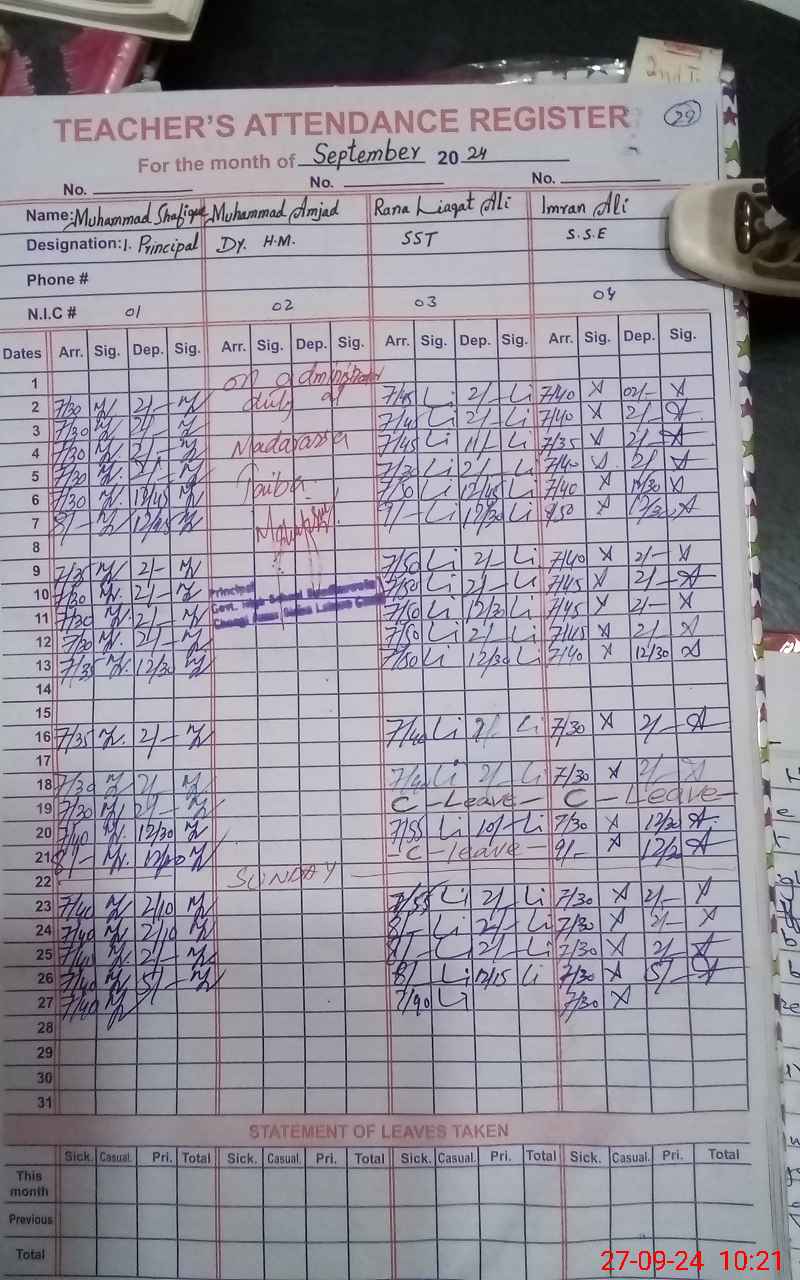 2nd T
TEACHER'S ATTENDANCE REGISTER 29
For the month of September 2024
No. No. No.
Name: Muhammad Shafique Muhammad Amjad Rana Liaqat Ali Imran Ali
Designation: 1. Principal Dy. H.M. SST S.S.E
Phone #
N.I.C # 01 02 03 04
Dates Arr. Sig. Dep. Sig. Arr. Sig. Dep. Sig. Arr. Sig. Dep. Sig. Arr. Sig. Dep. Sig.
1 on administration
2 7/30 2/- duty at 7/45 Li 2/- Li 7/40 02/-
3 7/30 2/- 7/45 Li 2/- Li 7/40 2/-
4 7/30 2/- Madarassa 7/45 Li 11/- Li 7/35 2/-
5 7/30 2/- 7/30 Li 2/- Li 7/40 2/
6 7/30 12/45 Taiba 7/50 Li 12/45 Li 7/40 12/30
7 8/- 12/45 9/- Li 12/30 Li 9/50 12/30
8
9 7/35 2/- 7/50 Li 2/- Li 7/40 2/-
10 7/30 2/- Principal 7/50 Li 2/- Li 7/45 2/-
11 7/30 2/- Govt. High School 7/50 Li 12/30 Li 7/45 2/-
12 7/30 2/- 7/50 Li 2/- Li 7/45 2/-
13 7/35 12/30 7/50 Li 12/30 Li 7/40 12/30
14
15
16 7/35 2/- 7/40 Li 2/- Li 7/30 2/-
17
18 7/30 2/- 7/40 Li 2/- Li 7/30 2/-
19 7/30 2/- C-Leave- C-Leave-
20 7/40 12/30 7/55 Li 10/- Li 7/30 12/30
21 8/- -C-leave- 9/-
22 SUNDAY
23 7/40 2/10 7/55 Li 2/- Li 7/30 2/-
24 7/40 2/10 8/- Li 2/- Li 7/30 2/-
25 7/40 2/- 8/- Li 2/- Li 7/30 2/-
26 7/40 5/- 8/- Li 12/15 Li 7/30 5/-
27 7/40 7/90 Li 7/30
28
29
30
31
STATEMENT OF LEAVES TAKEN
Sick. Casual. Pri. Total Sick. Casual. Pri. Total Sick. Casual. Pri. Total Sick. Casual. Pri. Total
This month
Previous
Total
27-09-24 10:21